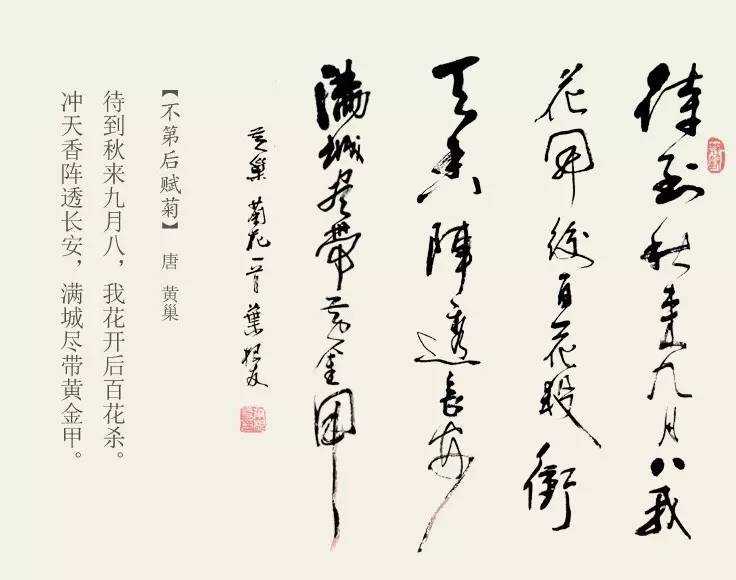 待到秋来九月八我
花開後百花殺衝
天香陣透長安
滿城尽帶黃金甲
黃巢 菊花一首 葉根友
【不第后赋菊】 唐 黄巢
待到秋来九月八，我花开后百花杀。
冲天香阵透长安，满城尽带黄金甲。